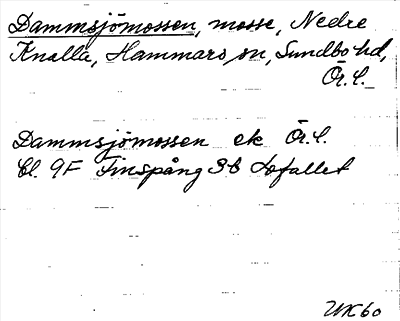 Dammsjömossen, mosse, Nedre
Knalla, Hammars sn, Sundbo hd,
Ör. l.
Dammsjömossen ek Ör. l.
Bl. 9F Finspång 3b Lofallet
UK60